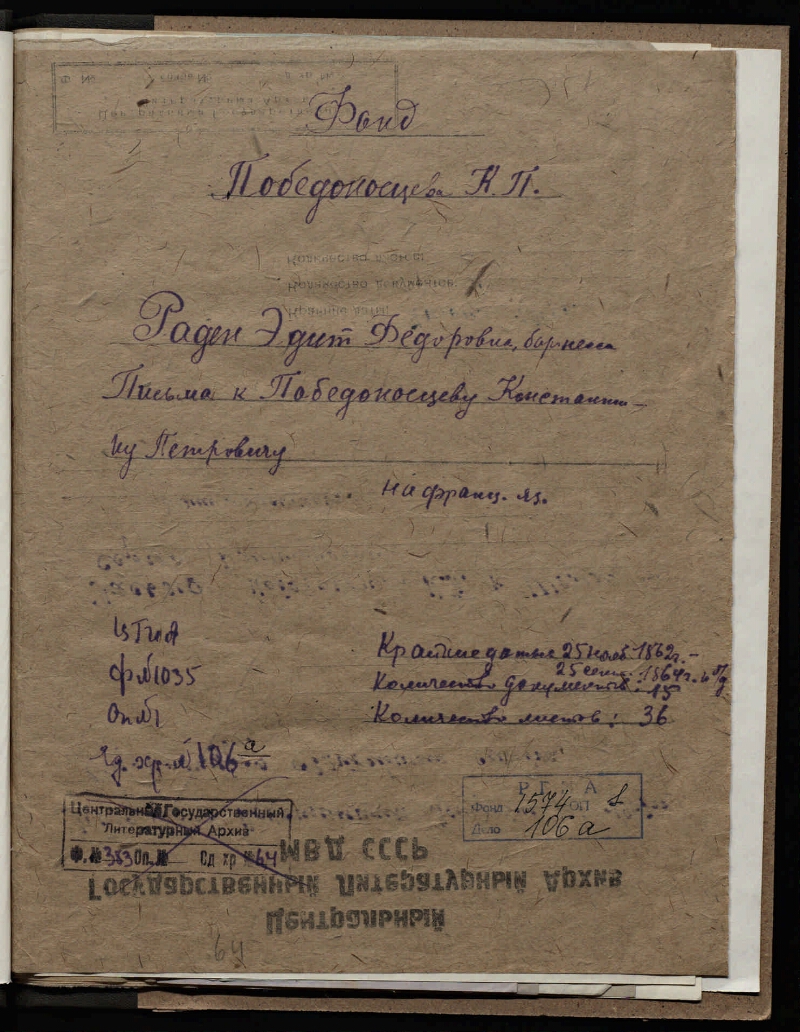 Фонд
Победоносцева К. П.
Количество листов:
Количество документов:
Крайние даты:
Раден Эдит Фёдоровна, баронесса
Письма к Победоносцеву Константи-
ну Петровичу
на франц. яз.
ЦГИА
Ф№1035
Оп№1
Ед. хр. № 106 а
Крайние даты 25 нояб. 1862 г. -
25 сент. 1864 г. и б/д
Количество документов: 15
Количество листов: 36
Центральный Государственный
Литературный Архив
Ф. № 353 Оп. № Ед хр № 64
РГИА
Фонд 1574 ОП 1
Дело 106 а
МВД СССР
Государственный Литературный Архив
Центральный
64